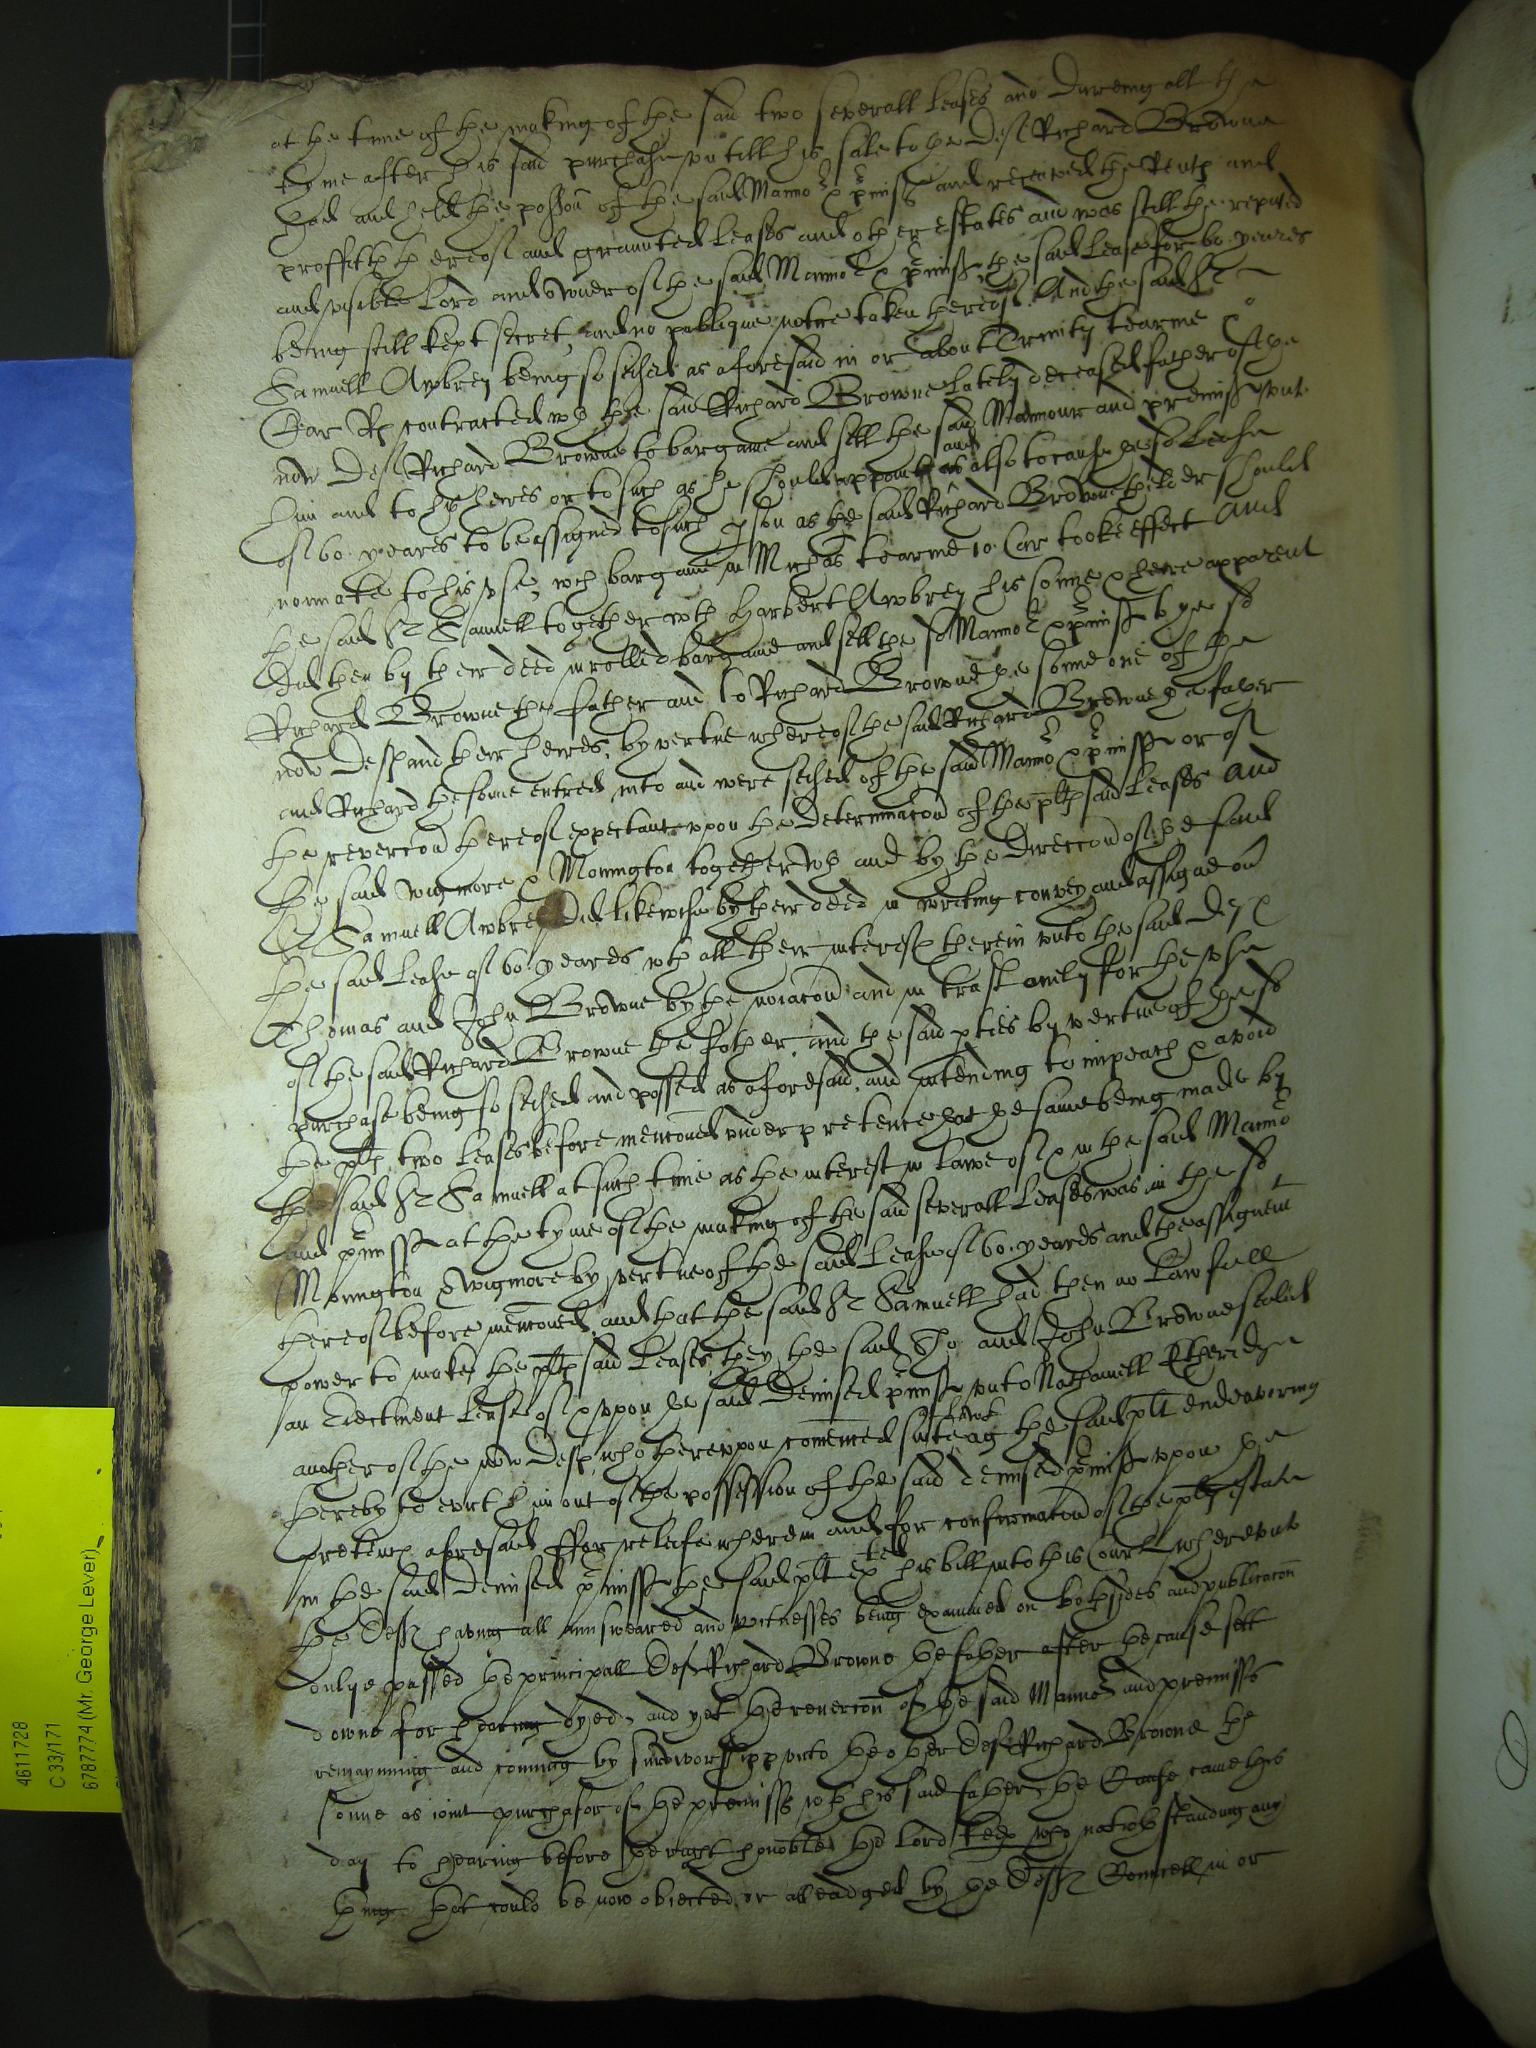 at the time of the making of the said two severall leases and dureing all the
tyme after his said purchase untill his sale to the Deft Richard Browne
had and held the possion of the said Mannor & pmiss and received the Rents and
proffitts thereof and graunted leases and other estates and was still the reputed
and visible Lord and owner of the said Mannor & pmiss, the said lease for 60. yeares
being still kept secret, and no publique notice taken thereof. And the said Sr
Samuell Awbrey being so seised as aforesaid in or about Trinity tearme 10
Car Rs contracted wth the said Richard Browne lately deceased father of the
now Deft Richard Browne to bargaine and sell the said Mannour and premiss unto
him and to his heires or to such as he should appoint and as also to cause the sd Lease
of 60. yeares to be assigned to such pson as the said Richard Browne thelder should
nominate to his use, wch bargaine in Michas tearme 10. Car tooke effect and
the said Sr Samuell together wth Harbert Awbrey his sonne & heire apparent
did then by their deed inrolled bargaine and sell the sd Mannor & pmiss to ye sd
Richard Browne the father and to Richard Browne ye sonne one of the
now Defts and their heires, by vertue whereof the said Richard Browne ye father
and Richard the sonne entred into and were seised of the said Mannor & pmiss or of
the revercon thereof expectant upon the determinacon of the plts said leases And
the said Wigmore & Monington together wth and by the direccon of the said
Sr Samuell Awbrey did likewise by their deed in writing convey and assigne ov
the said Lease of 60. yeares wth all their interest therein unto the said Defts
Thomas and John Browne by the noiacon and in trust onely for the use
of the said Richard Browne the father, and the said pties by vertue of the sd
purchase being so seised and possed as aforesaid, and intending to impeach & avoid
the plts two leases before menconed under pretence that the same being made by
the said Sr Samuell at such time as the interest in lawe of & in the said Mannor
and pmiss at the tyme of the making of the said severall Leases was in the sd
Monington & Wigmore by vertue of the said Lease of 60. yeares and the assignemt
thereof before menconed, and that the said Sr Samuell had then no lawfull
power to make the plts said Leases, they the said Tho: and John Browne sealed
an Eiectment lease of & upon the said demised pmiss unto Nathaniell Etheridge
another of the now Defts, who thereupon comenced suite at lawe ag the said plt endeavoring
thereby to evict him out of the possession of the said demised pmiss upon the
pretence aforesaid ffor releife wherein and for confirmacon of the plts estate
in the said demised pmiss the said plt exted his bill into this Court whereunto
the Defts having all answeared and witnesses being examined on both sydes and publicacon
dulye passed the principall Deft Richard Browne the father after the cause sett
downe for hearing dyed, and yet the revercon of the said Mannor and premisss
remayning and coming by survivorshipp unto the other Deft Richard Browne the
sonne as ioint purchasor of the premisss wth his said father, the Cause came this
day to hearing before the right honoble the Lord Keep who notwthstanding any
thing that could be now obiected or alleadged by the Defts Councell in or
4611728
C 33/171
6787774 (Mr. George Lever)